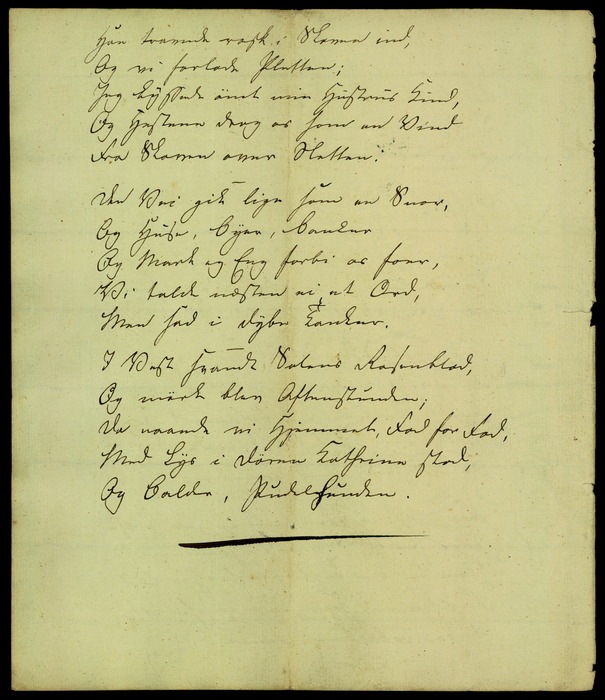 Han travede rask i Skoven ind,
Og vi forlode Pletten;
Jeg kyssede ømt min Hustrus Kind,
Og Hestene drog os som en Vind
Fra Skoven over Sletten.
Den Vei gik lige som en Snor,
Og Huse, Byer, Banker
Og Mark og Eng forbi os foer,
Vi talde næsten ei et Ord,
Men sad i dybe Tanker.
I Vest svandt Solens Rosenblod,
Og mørk blev Aftenstunden;
Da naaede vi Hjemmet, Fod for Fod,
Med Lys i Døren Kathrine stod,
Og Balder, Pudelhunden.